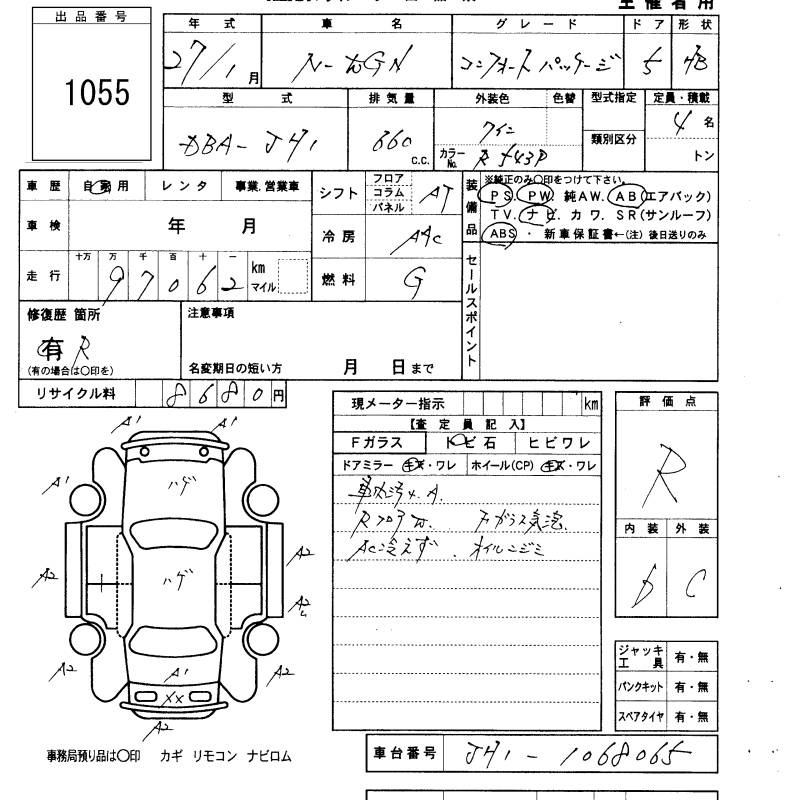 主催者用
出品番号
1055
年式 車名 グレード ドア 形状
27/1月 N-WGN コンフォートパッケージ 5 HB
型式 排気量 外装色 色替 型式指定 定員・積載
DBA-JH1 660 c.c. ワイン 類別区分 4名
カラーNo. R543P トン
車歴 自家用 レンタ 事業.営業車
シフト フロア コラム パネル AT
車検 年 月
冷房 AAC
走行 十万 万 千 百 十 一 km マイル
97062
燃料 G
装備品 ※純正のみ○印をつけて下さい。
PS. PW. 純AW. AB(エアバック)
TV. ナビ. カワ. SR(サンルーフ)
ABS ・ 新車保証書←(注) 後日送りのみ
セールスポイント
修復歴 箇所
有 R
(有の場合は○印を)
注意事項
名変期日の短い方 月 日まで
リサイクル料 8680円
現メーター指示 km
【査定員記入】
Fガラス トビ石 ヒビワレ
ドアミラー キズ・ワレ ホイール(CP) キズ・ワレ
車内汚れ.A.
RフロアW. Fガラス気泡.
AC冷えず. オイルニジミ
評価点
R
内装 外装
D C
ジャッキ工具 有・無
パンクキット 有・無
スペアタイヤ 有・無
A1 A1
A1 ハゲ
A2 A2
ハゲ
A2
A2 A1 A2
XX
A2
事務局預り品は○印 カギ リモコン ナビロム
車台番号 JH1-1068065